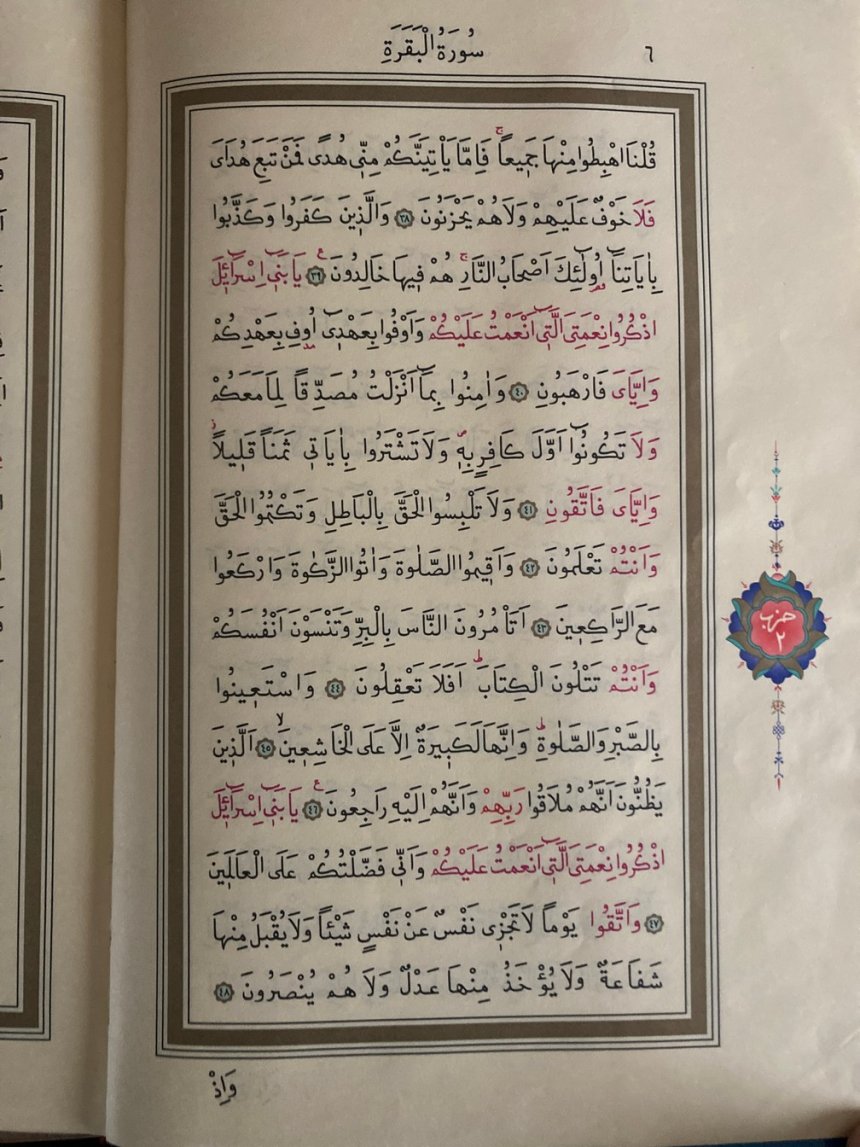 سُورَةُ الْبَقَرَةِ
٦
قُلْنَا اهْبِطُوا مِنْهَا جَمٖيعاًۚ فَاِمَّا يَأْتِيَنَّكُمْ مِنّٖى هُدًى فَمَنْ تَبِعَ هُدَاىَ
فَلَا خَوْفٌ عَلَيْهِمْ وَلَا هُمْ يَحْزَنُونَ ٣٨ وَالَّذٖينَ كَفَرُوا وَكَذَّبُوا
بِاٰيَاتِنَٓا اُو۬لٰٓئِكَ اَصْحَابُ النَّارِۚ هُمْ فٖيهَا خَالِدُونَࣖ ٣٩ يَا بَنٖٓى اِسْرَٓائٖلَ
اذْكُرُوا نِعْمَتِىَ الَّتٖٓى اَنْعَمْتُ عَلَيْكُمْ وَاَوْفُوا بِعَهْدٖٓى اُو۫فِ بِعَهْدِكُمْ
وَاِيَّاىَ فَارْهَبُونِ ٤٠ وَاٰمِنُوا بِمَٓا اَنْزَلْتُ مُصَدِّقاً لِمَا مَعَكُمْ
وَلَا تَكُونُٓوا اَوَّلَ كَافِرٍ بِهٖࣕ وَلَا تَشْتَرُوا بِاٰيَاتٖى ثَمَناً قَلٖيلاًؗ
وَاِيَّاىَ فَاتَّقُونِ ٤١ وَلَا تَلْبِسُوا الْحَقَّ بِالْبَاطِلِ وَتَكْتُمُوا الْحَقَّ
وَاَنْتُمْ تَعْلَمُونَ ٤٢ وَاَقٖيمُوا الصَّلٰوةَ وَاٰتُوا الزَّكٰوةَ وَارْكَعُوا
مَعَ الرَّاكِعٖينَ ٤٣ اَتَأْمُرُونَ النَّاسَ بِالْبِرِّ وَتَنْسَوْنَ اَنْفُسَكُمْ
وَاَنْتُمْ تَتْلُونَ الْكِتَابَؕ اَفَلَا تَعْقِلُونَ ٤٤ وَاسْتَعٖينُوا
بِالصَّبْرِ وَالصَّلٰوةِؕ وَاِنَّهَا لَكَبٖيرَةٌ اِلَّا عَلَى الْخَاشِعٖينَۙ ٤٥ اَلَّذٖينَ
يَظُنُّونَ اَنَّهُمْ مُلَاقُوا رَبِّهِمْ وَاَنَّهُمْ اِلَيْهِ رَاجِعُونَࣖ ٤٦ يَا بَنٖٓى اِسْرَٓائٖلَ
اذْكُرُوا نِعْمَتِىَ الَّتٖٓى اَنْعَمْتُ عَلَيْكُمْ وَاَنّٖى فَضَّلْتُكُمْ عَلَى الْعَالَمٖينَ
٤٧ وَاتَّقُوا يَوْماً لَا تَجْزٖى نَفْسٌ عَنْ نَفْسٍ شَيْـٔاً وَلَا يُقْبَلُ مِنْهَا
شَفَاعَةٌ وَلَا يُؤْخَذُ مِنْهَا عَدْلٌ وَلَا هُمْ يُنْصَرُونَ ٤٨
وَاِذْ
حزب
٢